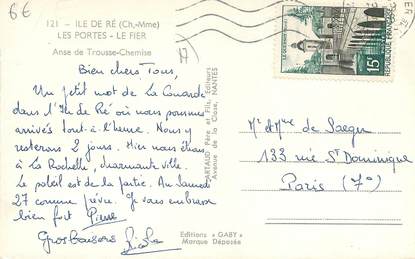 6€
121 - ILE DE RÉ (Ch.-Mme)
LES PORTES - LE FIER
Anse de Trousse-Chemise
Bien chers Tous,
Un petit mot de La Couarde
dans l'Ile de Ré où nous sommes
arrivés tout-à-l'heure. Nous y
resterons 2 jours. Hier nous étions
à La Rochelle, charmante ville.
Le soleil est de la partie. Au Samedi
27 comme prévu. Je vous embrasse
bien fort Pierre
Gros baisers
ARTAUD Père et Fils, Éditeurs
Avenue de la Close, NANTES
Editions « GABY »
Marque Déposée
LE QUESNOY
15F
REPUBLIQUE FRANÇAISE
Mr et Mme de Saeger
133 rue St Dominique
Paris (7e)